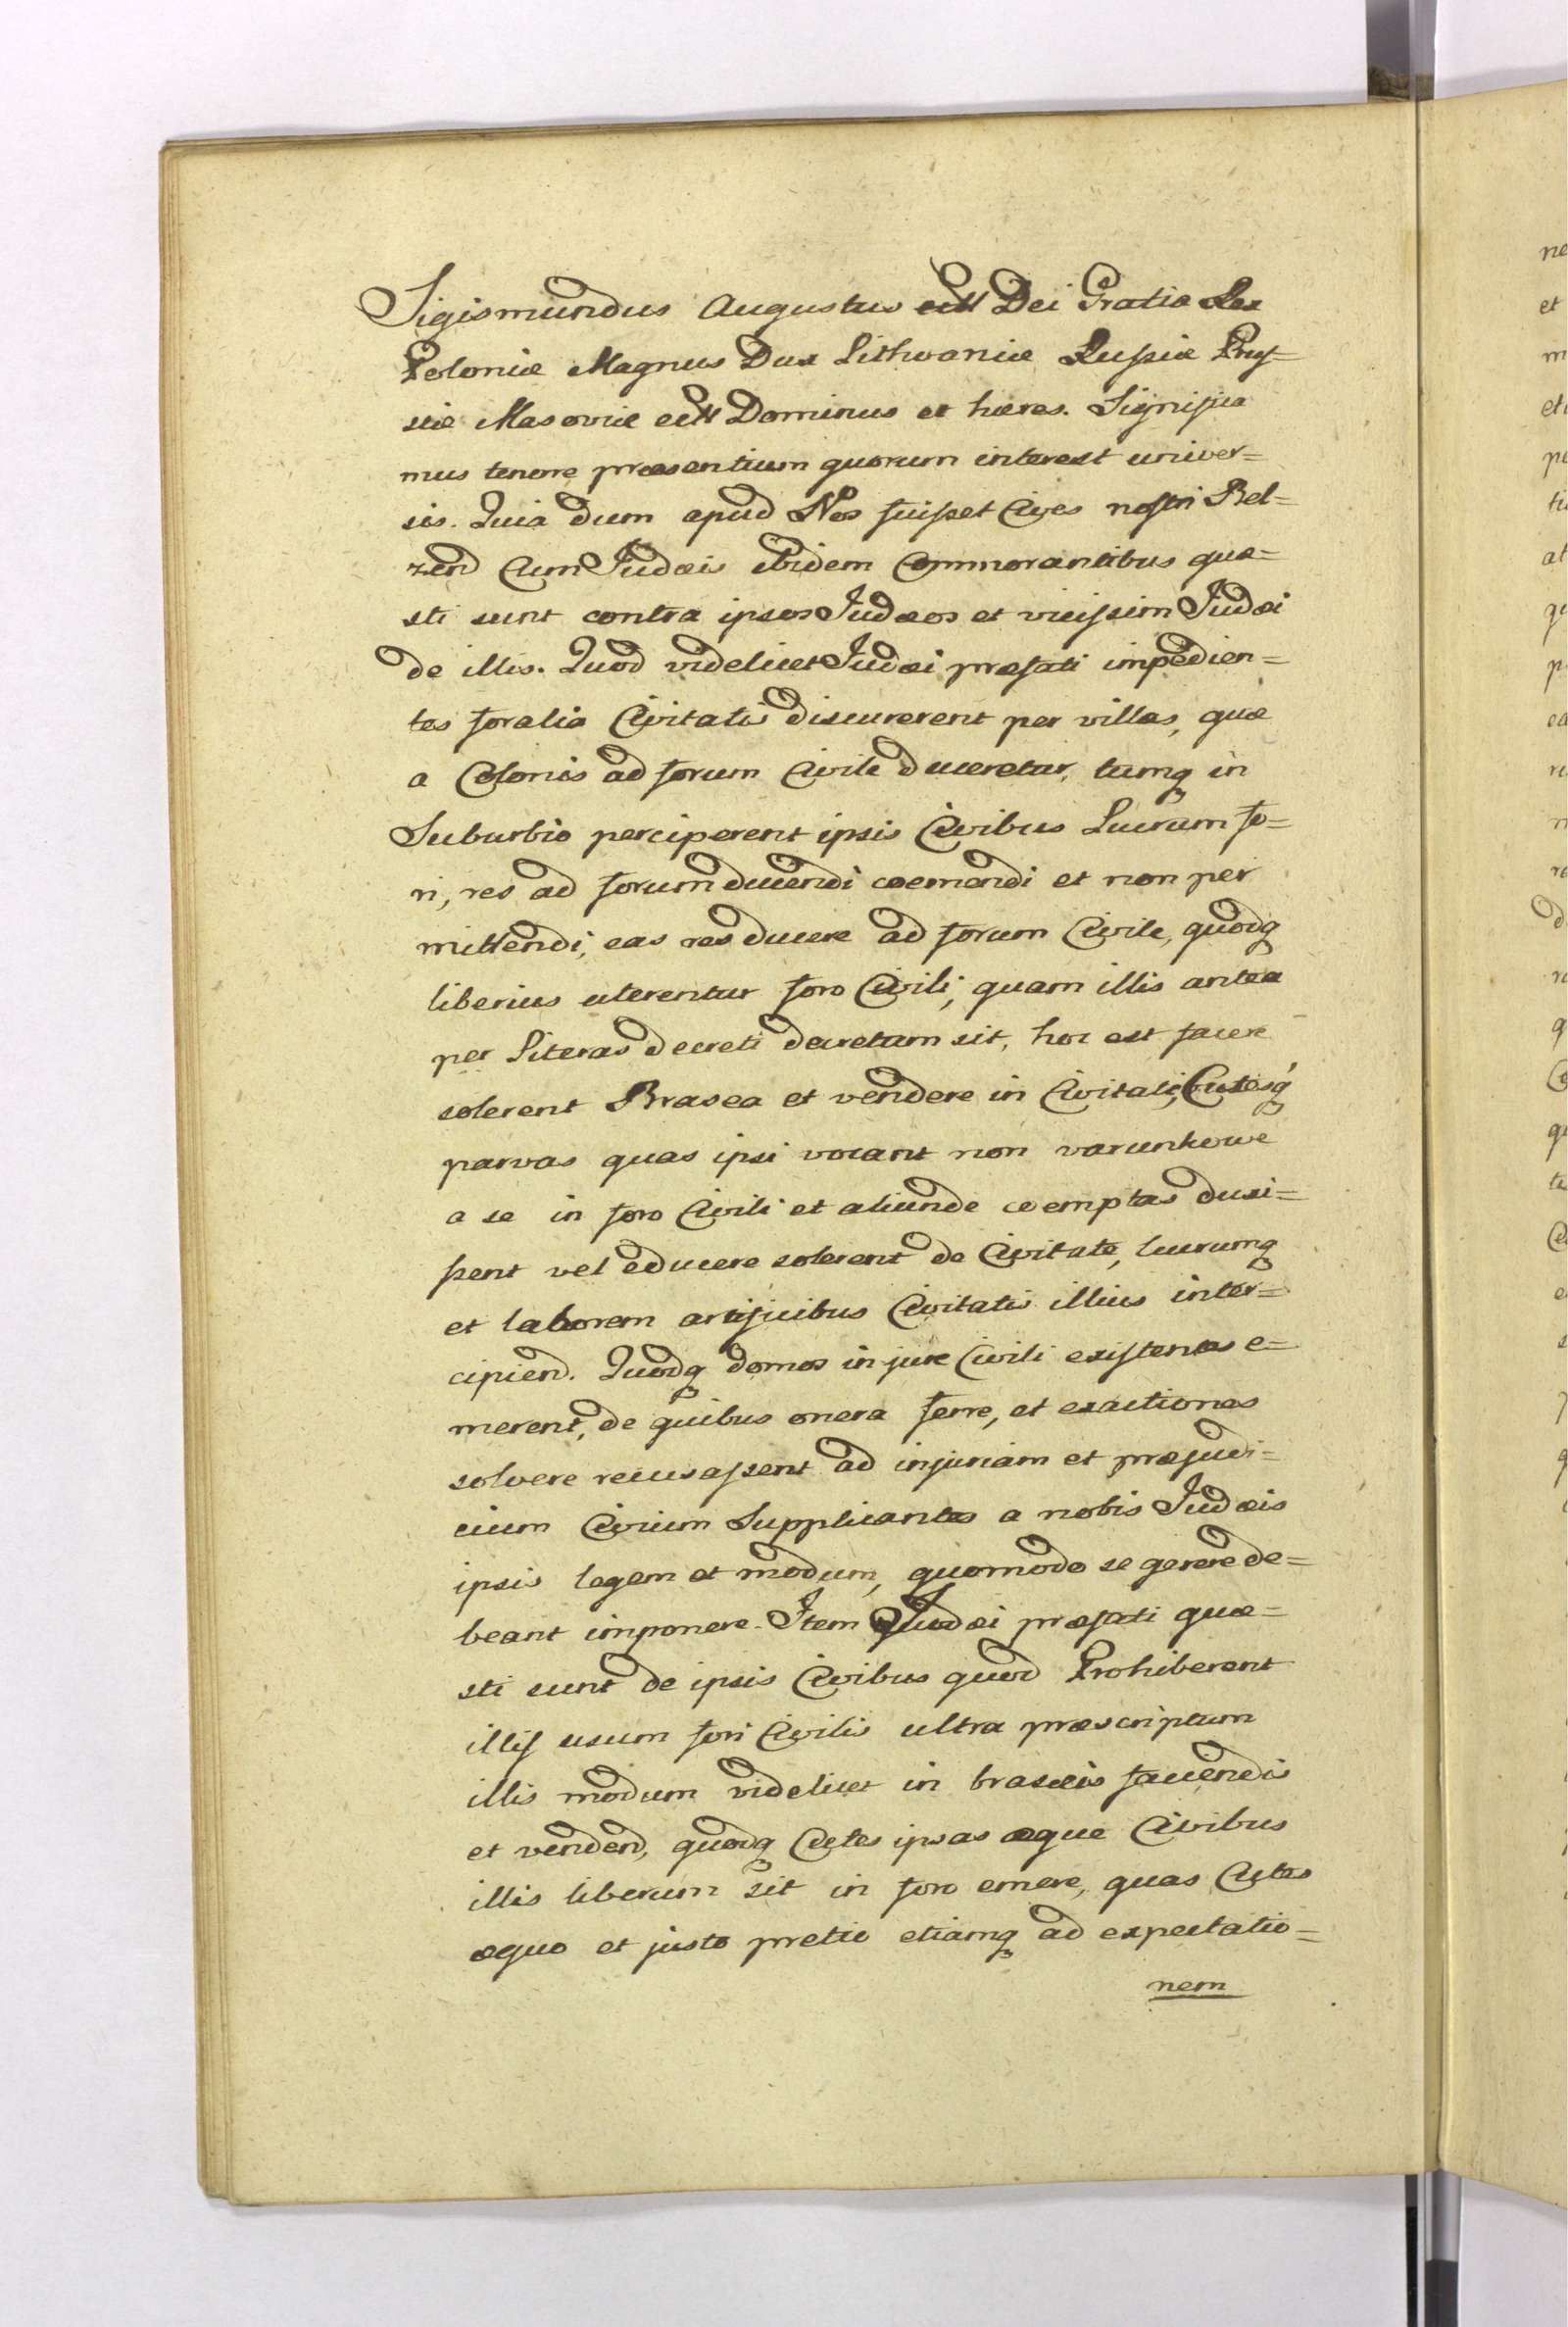 Sigismundus Augustus ectt Dei Gratia Rex
Poloniæ Magnus Dux Lithvaniæ Russiæ Prus=
siæ Masoviæ ectt Dominus et hæres. Significa
mus tenore præsentium quorum interest univer=
sis. Quia dum apud Nos fuisset Cives nostri Bel=
zen̄ Cum Judæis ibidem Commorantibus quæ=
sti sunt contra ipsos Judæos et vicissim Judæi
de illis. Quod videlicet Judæi præfati impedien=
tes foralia Civitatis discurerent per villas, quæ
a Colonis ad forum Civile duceretur, tumq in
Suburbio perciperent ipsis Civibus Lucrum fo=
ri, res ad forum ducendi coemendi et non per
mittendi, eas res ducere ad forum Civile, quodq
liberius uterentur foro Civili, quam illis antea
per Literas decreti decretum sit, hoc est facere
solerent Brasea et vendere in Civitate, Cutesq
parvas quas ipsi vocant non varunkowe
a se in foro Civili et aliunde coemptas duxi=
ssent vel educere solerent de Civitate, lucrumq
et laborem artificibus Civitatis illius inter=
cipiend. Quodq domos in jure Civili existentes e=
merent, de quibus onera ferre, et exactiones
solvere recusassent ad injuriam et præjudi=
cium Civium Supplicantes a nobis Judæis
ipsis legem et modum, quomodo se gerere de=
beant imponere. Item Judæi præfati quæ=
sti sunt de ipsis Civibus quod Prohiberent
illis usum fori Civilis ultra præscriptum
illis modum videlicet in braseis faciendis
et venden̄d, quodq Cutes ipsas æque Civibus
illis liberum sit in foro emere, quas Cutes
æquo et justo pretio etiamq ad expectatio=
nem